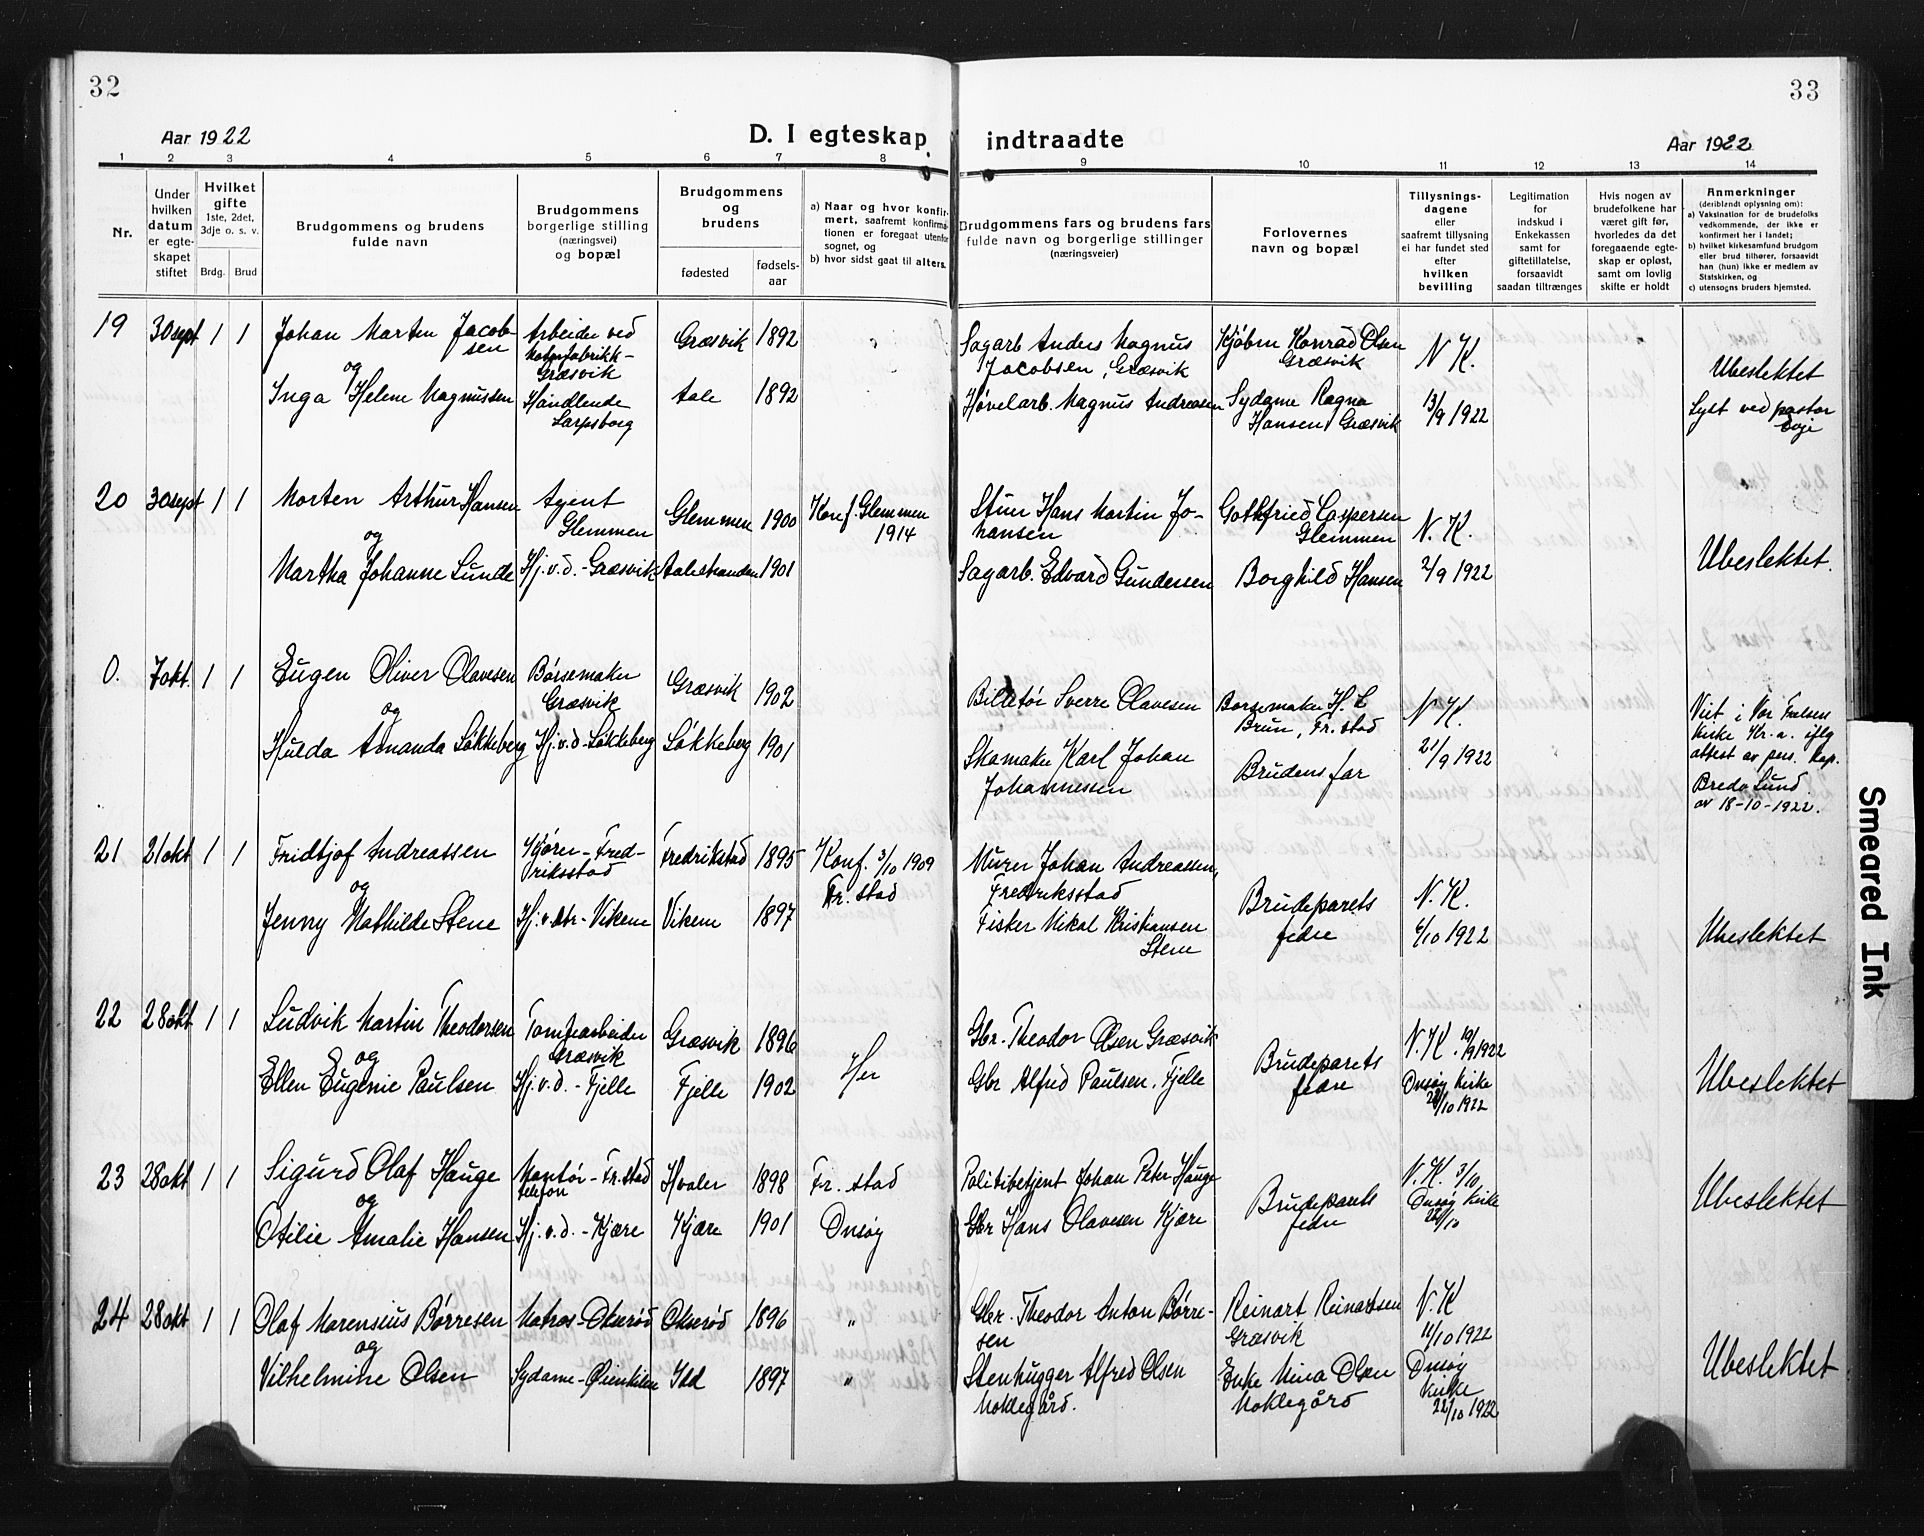 32
33
Aar 1922
D. I egteskap
indtraadte
Aar 1922
1 2 3 4 5 6 7 8
9 10 11 12 13 14
Nr.
Under
hvilken
datum
er egte-
skapet
stiftet
Hvilket
gifte
1ste, 2det,
3dje o. s. v.
Brdg. Brud
Brudgommens og brudens
fulde navn
Brudgommens
borgerlige stilling
(næringsvei)
og bopæl
Brudgommens
og
brudens
fødested
fødsels-
aar
a) Naar og hvor konfir-
mert, saafremt konfirma-
tionen er foregaat utenfor
sognet, og
b) hvor sidst gaat til alters.
Brudgommens fars og brudens fars
fulde navn og borgerlige stillinger
(næringsveier)
Forlovernes
navn og bopæl
Tillysnings-
dagene
eller
saafremt tillysning
ei har fundet sted
efter
hvilken
bevilling
Legitimation
for
indskud i
Enkekassen
samt for
giftetillatelse,
forsaavidt
saadan tiltrænges
Hvis nogen av
brudefolkene har
været gift før,
hvorledes da det
foregaaende egte-
skap er opløst,
samt om lovlig
skifte er holdt
Anmerkninger
(deriblandt oplysning om):
a) Vaksination for de brudefolks
vedkommende, der ikke er
konfirmert her i landet;
b) hvilket kirkesamfund brudgom
eller brud tilhører, forsaavidt
han (hun) ikke er medlem av
Statskirken, og
c) utensogns bruders hjemsted.
19 30 sept 1 1
Johan Marten Jacob-
sen
og
Inga Helene Magnussen
Arbeider ved
Græsvik
Handlende
Sarpsborg
Græsvik 1892
Aale 1892
Sagarb Anders Magnus
Jacobsen, Græsvik
Høvelarb. Magnus Andreasen
Kjøbm Konrad Olsen
Græsvik
Sydame Ragna
Hansen, Græsvik
N. K.
13/9 1922
Ubeslektet
Lyst ved pastor
Evje
20 30 sept 1 1
Morten Arthur Hansen
og
Martha Johanne Lunde
Agent
Glemmen
Hj.v.d. - Græsvik
Glemmen 1900
Aalestranden 1901
Konf. Glemmen
1914
Hans Martin Jo-
hansen
Sagarb. Edvard Gundersen
Gothfried Caspersen
Glemmen
Borghild Hansen
N. K.
2/9 1922
Ubeslektet.
0. 7 okt. 1 1
Eugen Oliver Olavesen
og
Hulda Amanda Løkkeberg
Børsemaker
Græsvik
Hj.v.d - Løkkeberg
Græsvik 1902
Løkkeberg 1901
Billetør Sverre Olavesen
Skomaker Karl Johan
Johannessen
Børsemaker H. L
Brun, Fr. stad
Brudens far
N K.
21/9 1922
Viet i Vor Frelsers
kirke Kr.a. iflg
attest av pers. Kap.
Bredo Lund.
av 18-10-1922.
21 21 okt 1 1
Fridtjof Andreassen
og
Jenny Mathilde Stene
Kjører - Fred-
riksstad
Hj. v. dtr - Vikene
Fredrikstad 1895
Vikene 1897
Konf. 3/10 1909
Fr. stad
Murer Johan Andreassen,
Fredriksstad
Fisker Nikal Kristiansen
Stene
Brudeparets
fedre
N. K.
6/10 1922
Ubeslektet
22 28 okt 1 1
Ludvik Martin Theodorsen
og
Ellen Eugenie Paulsen
Tomtearbeider
Græsvik
Hj.v.d. - Fjelle
Græsvik 1896
Fjelle 1902
Her
Gbr. Theodor Olsen Græsvik
Gbr Alfred Paulsen, Fjelle
Brudeparets
fedre
N. K. 19/9 1922
Onsøy Kirke
22/10 1922
Ubeslektet
23 28 okt 1 1
Sigurd Olaf Hauge
og
Otilie Amalie Hansen
Montør - Fr. stad
telefon
Hj. v. d. - Kjære
Hvaler 1898
Kjære 1901
Fr. stad
Onsøy
Politibetjent Johan Peter Hauge
Gbr Hans Olavesen Kjære
Brudeparets
fedre
N. K. 3/10
Onsøy Kirke
22/10
Ubeslektet
24 28 okt 1 1
Olaf Marensius Børresen
og
Vilhelmine Olsen
Matros - Okserød
Sydame - Øienkilen
Okserød 1896
1897
"
"
Gbr. Theodor Anton Børre-
sen
Stenhugger Alfred Olsen
Moklegård.
Reinart Reinartsen
Græsvik
Enke Mina Olsen
Moklegård
N. K
11/10 1922
Onsøy
Kirke
22/10 1922
Ubeslektet
Smeared Ink